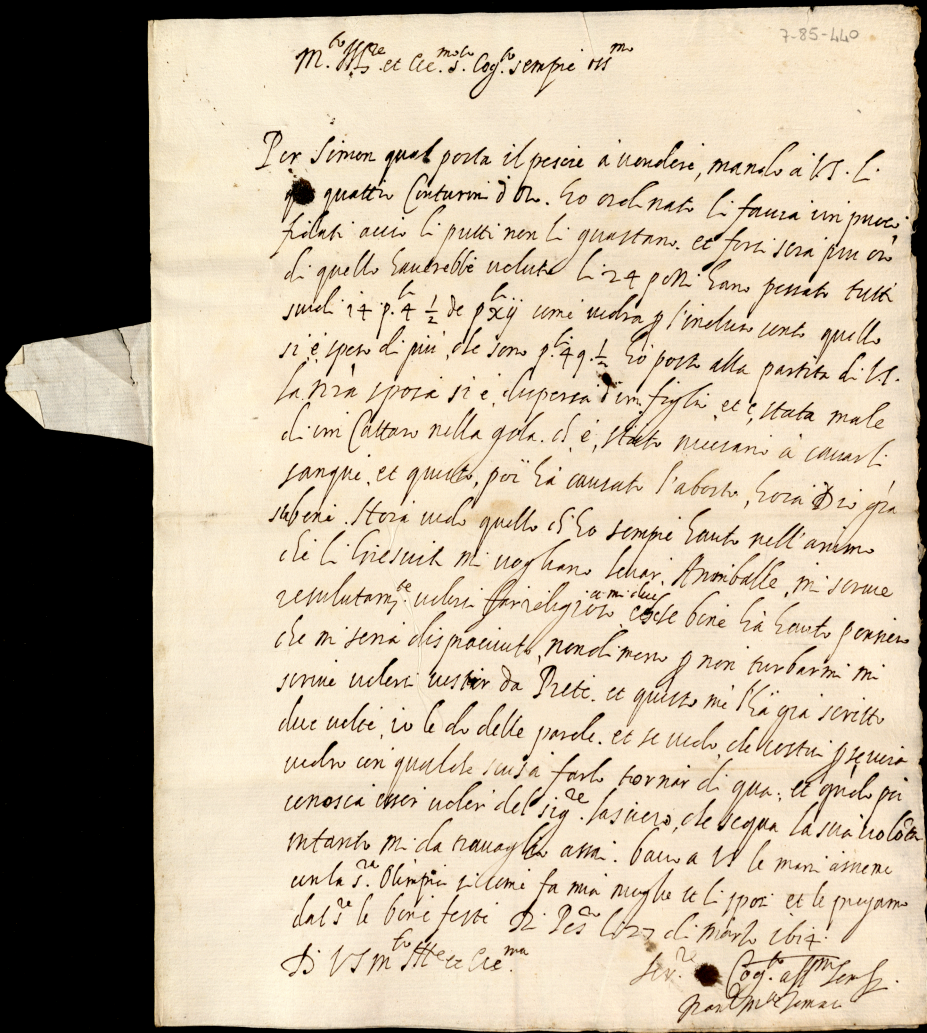 7-85-440
M.to Ill.re et Ecc.mo S.r Cog.to sempre oss.mo
Per Simon qual porta il pescie à vendere, mando a VS. li
quattro Centurini d'oro. ho ordinato li faccia un poco
fidati acciò li putti non li guastano. et forsi sera piu oro
di quello haverebbe voluto li 24 posti hano pessato tutti
scudi 14 p. 4 1/2 de p xij come vedra p l'incluso conto quello
si è speso di più, che sono p. 49. 1/2 hò posto alla partita di V.S.
la nra sposa si è dispersa d'un figlio, et è stata male
di un Cattaro nella gola. ch' è stato necessario à cavarli
sangue, et questo, poi hà causato l'aborto, hora Dio gra
sta bene. Hora vedo quello ch' ho sempre hauto nell'animo
che li Giesuiti mi vogliano levar Anniballe, mi scrive
resolutam.te volersi far religioso à mi che se bene hà hauto pensiero
che mi seria dispiaciuto, nondimeno p non turbarmi mi
scrive volersi vestir da Prete. et questo me l'hà già scritto
due volte, io le do delle parole. et se vedo, che costui p severa
vedrò con qualche scusa farlo tornar di qua. et quando poi
conosca esser voler del Sig.re lasciero, che segua la sua volontà
intanto mi da travaglio assai. bacio a VS le mani insieme
con la S.ra Olimpia si come fa mia moglie et li sposi et le pregamo
dal S.re le bone feste Di Pes.ro li 27 di Marzo 1614.
Di VS m.to Ill.re et Ecc.ma
Ser.re Cog.to aff.mo